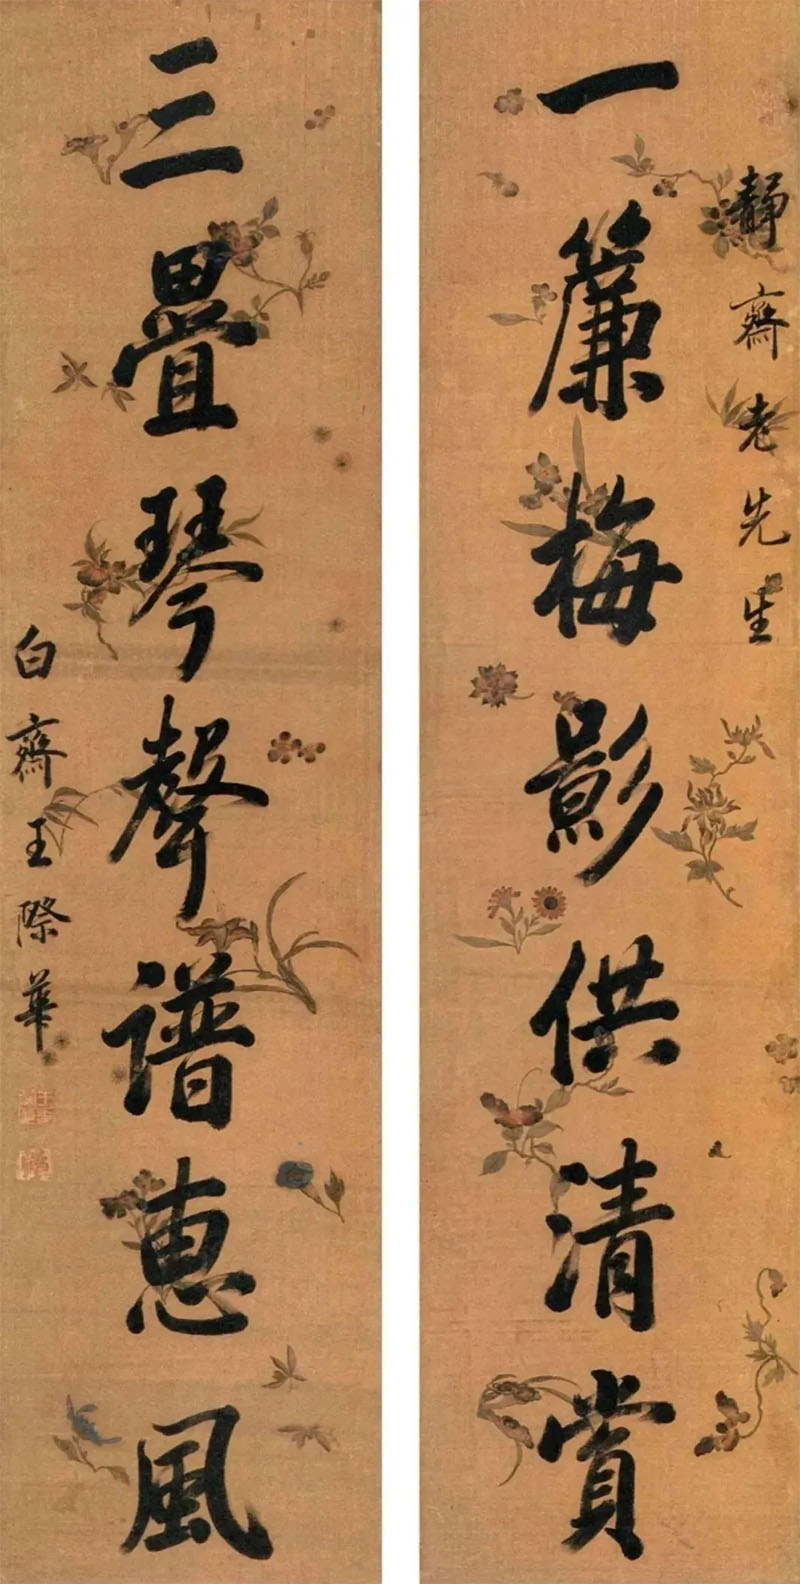 靜齋老先生
一簾梅影供清賞
三疊琴聲譜惠風
白齋王際華